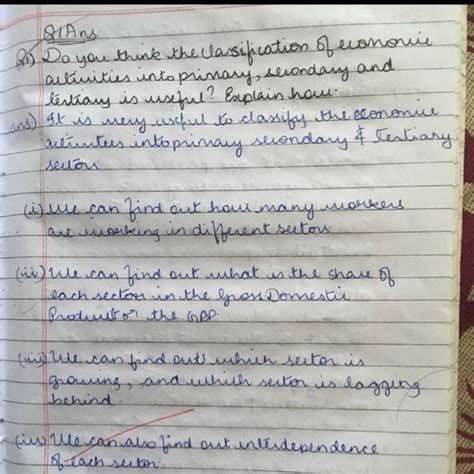 Q/Ans
Q1) Do you think the classification of economic
activities into primary, secondary and
tertiary is useful? Explain how.
Ans) It is very useful to classify the economic
activities into primary secondary & Tertiary
sectors
(i) We can find out how many workers
are working in different sectors.
(ii) We can find out what is the share of
each sector in the Gross Domestic
Product or the GDP.
(iii) We can find out which sector is
growing, and which sector is lagging
behind.
(iv) We can also find out interdependence
of each sector.